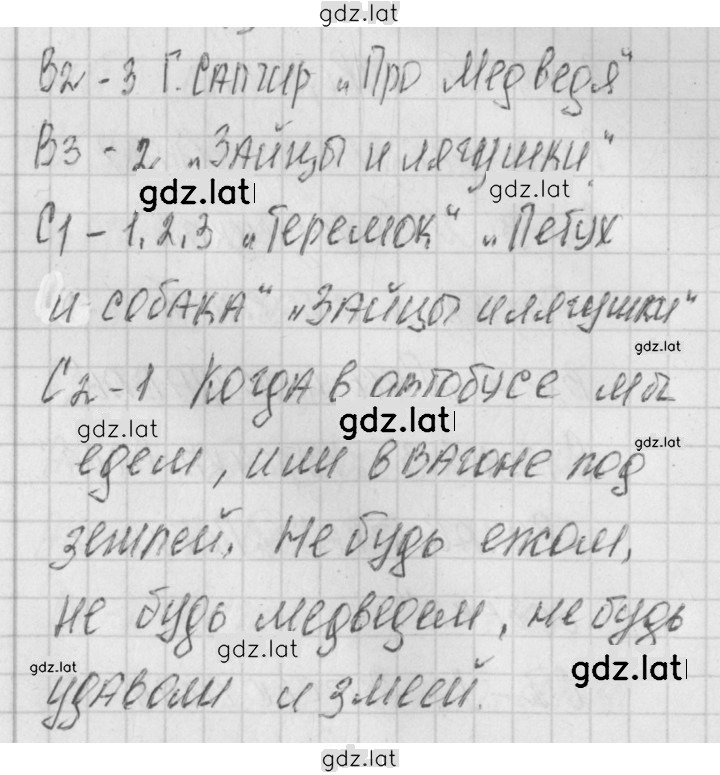 gdz.lat
В2 - 3 Г. Сапгир „Про Медведя"
В3 - 2 „Зайцы и лягушки"
gdz.lat gdz.lat
С1 - 1, 2, 3 „Теремок" „Петух
и собака" „Зайцы и лягушки"
gdz.lat
С2 - 1 Когда в автобусе мы
gdz.lat gdz.lat gdz.lat
едем, или в вагоне под
землей. Не будь ежом,
не будь медведем, не будь
gdz.lat gdz.lat gdz.lat
удавом и змеей.
gdz.lat